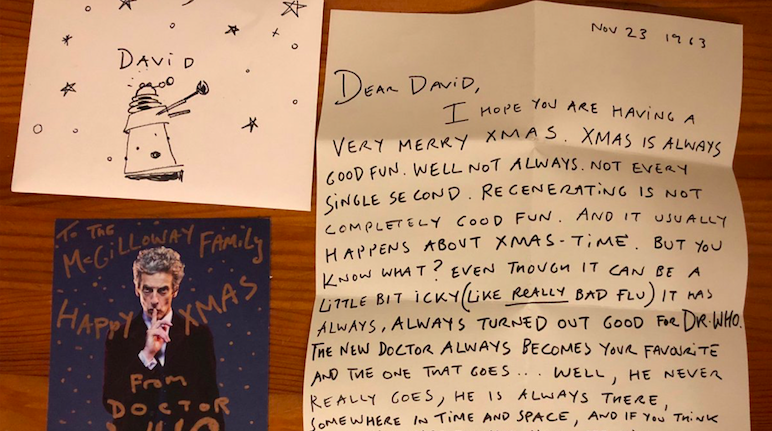 DAVID
TO THE
McGILLOWAY FAMILY
HAPPY XMAS
FROM
DOCTOR
WHO
NOV 23 1963
DEAR DAVID,
I HOPE YOU ARE HAVING A
VERY MERRY XMAS. XMAS IS ALWAYS
GOOD FUN. WELL NOT ALWAYS. NOT EVERY
SINGLE SECOND. REGENERATING IS NOT
COMPLETELY GOOD FUN. AND IT USUALLY
HAPPENS ABOUT XMAS-TIME. BUT YOU
KNOW WHAT? EVEN THOUGH IT CAN BE A
LITTLE BIT ICKY (LIKE REALLY BAD FLU) IT HAS
ALWAYS, ALWAYS TURNED OUT GOOD FOR DR. WHO.
THE NEW DOCTOR ALWAYS BECOMES YOUR FAVOURITE
AND THE ONE THAT GOES... WELL, HE NEVER
REALLY GOES, HE IS ALWAYS THERE,
SOMEWHERE IN TIME AND SPACE, AND IF YOU THINK